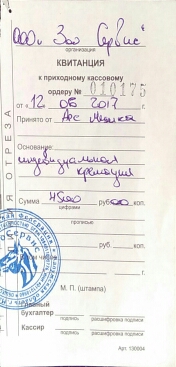 ООО "Зоо Сервис"
организация
КВИТАНЦИЯ
к приходному кассовому
ордеру № 010175
от « 12 » 06 2017 г.
Принято от
Основание:
индивидуальная
кремация
Сумма 4500 руб. 00 коп.
цифрами
прописью
руб. коп.
М. П. (штампа)
бухгалтер
подпись расшифровка подписи
Кассир
подпись расшифровка подписи
Арт. 130004
Я ОТРЕЗА